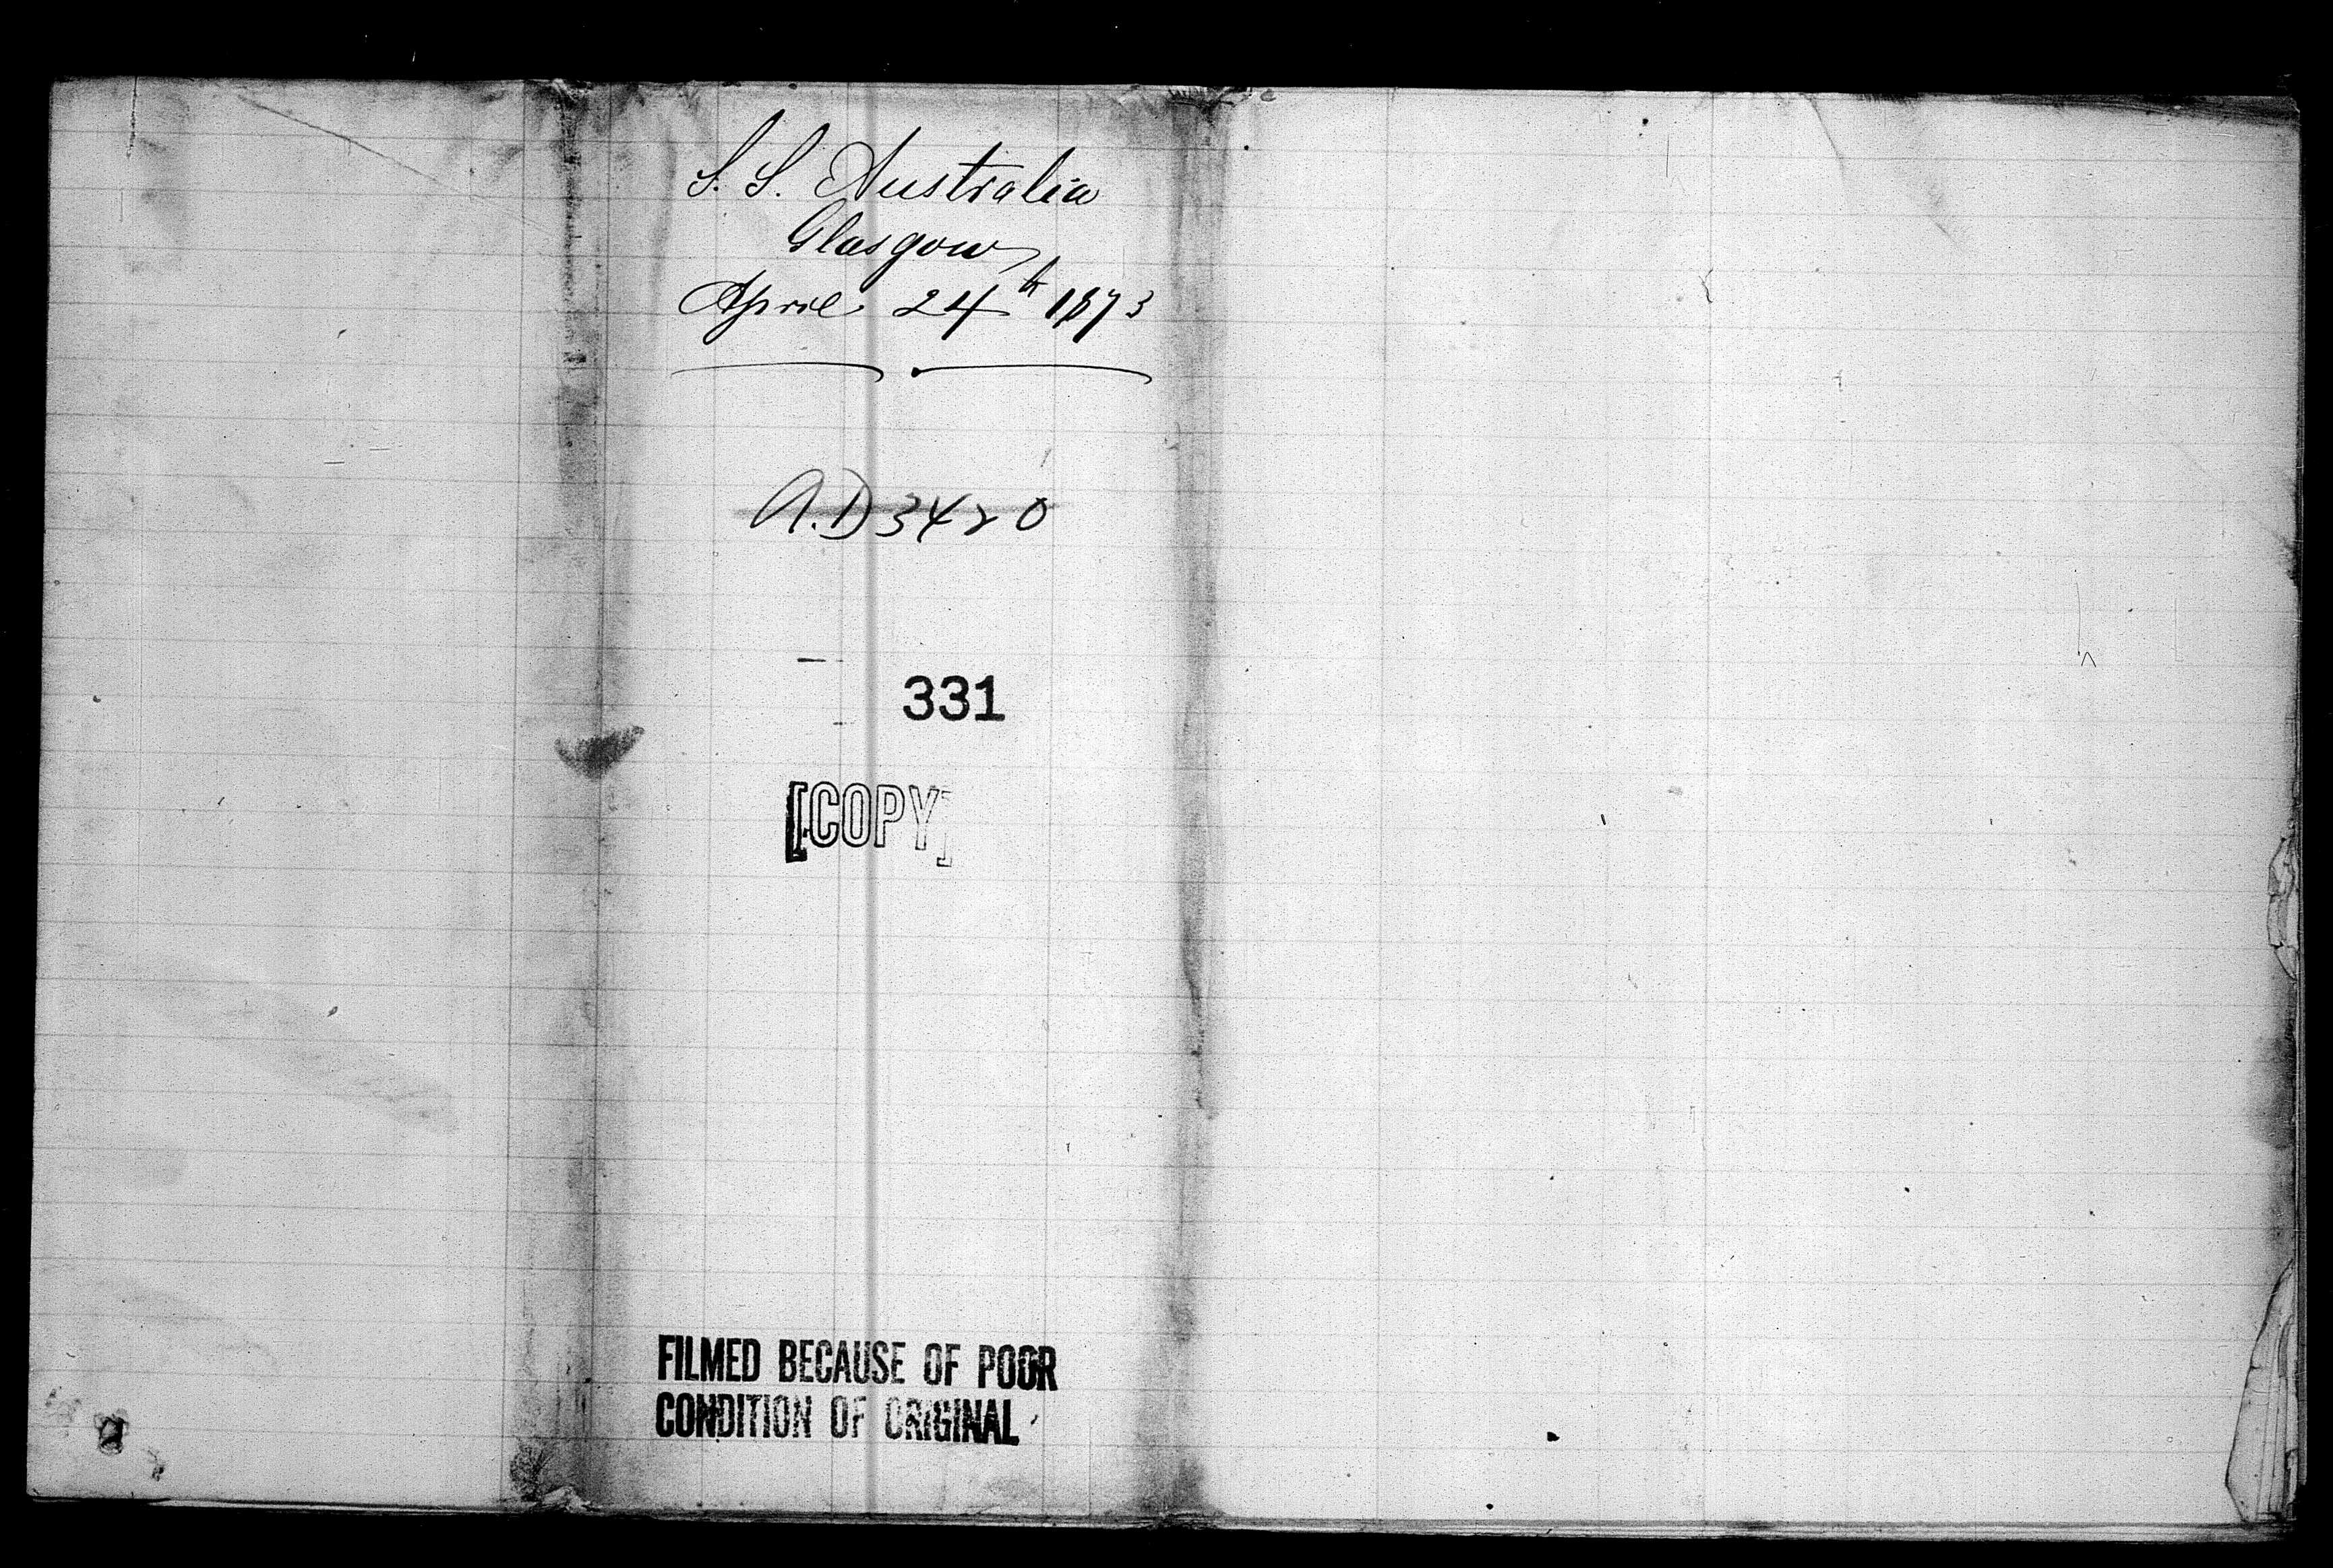 S. S. Australia
Glasgow
April 24th 1873
A.D 3420
331
[COPY]
FILMED BECAUSE OF POOR
CONDITION OF ORIGINAL